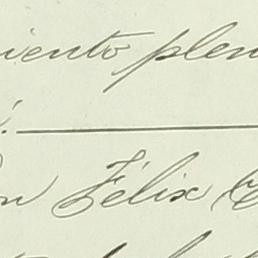 iento plen
on Félix